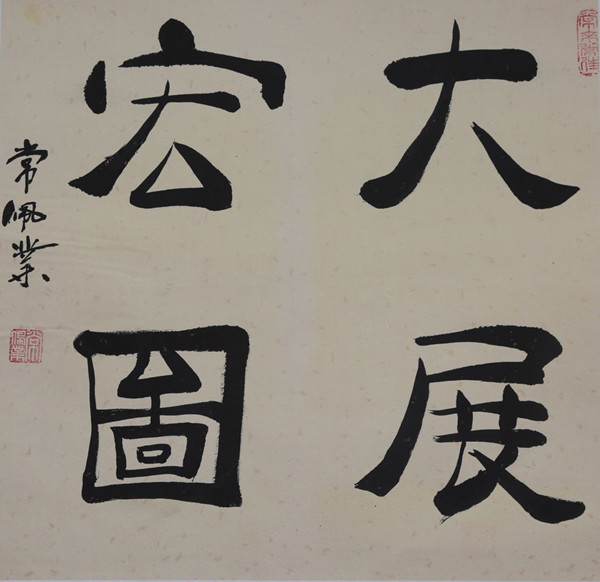 大展
宏圖
常佩業